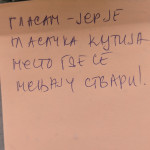 ГЛАСАМ - ЈЕР ЈЕ
ГЛАСАЧКА КУТИЈА
МЕСТО ГДЕ СЕ
МЕЊАЈУ СТВАРИ!